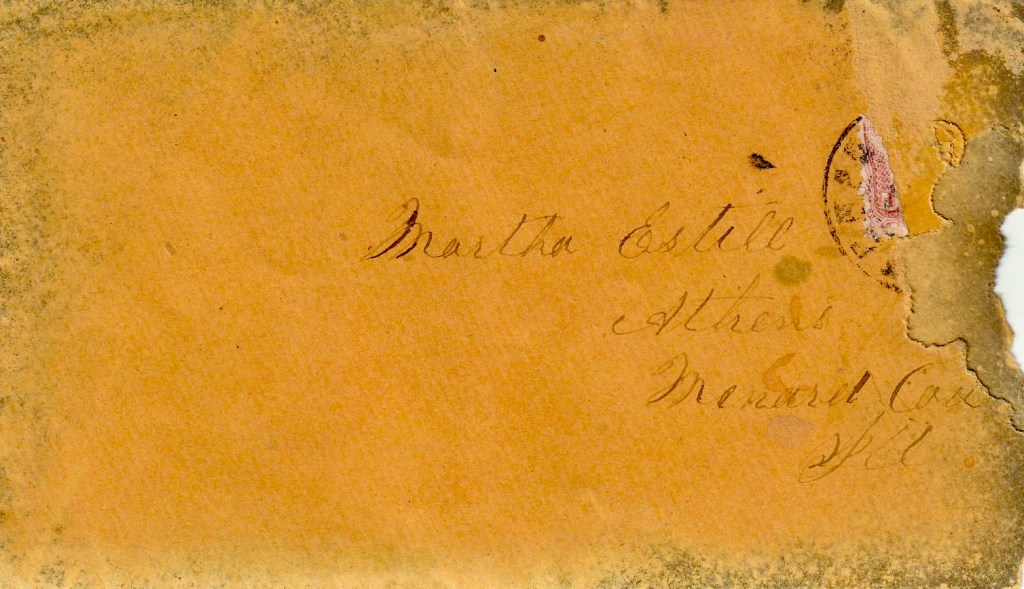 Martha Estill
Athens
Menard Cou
Ill